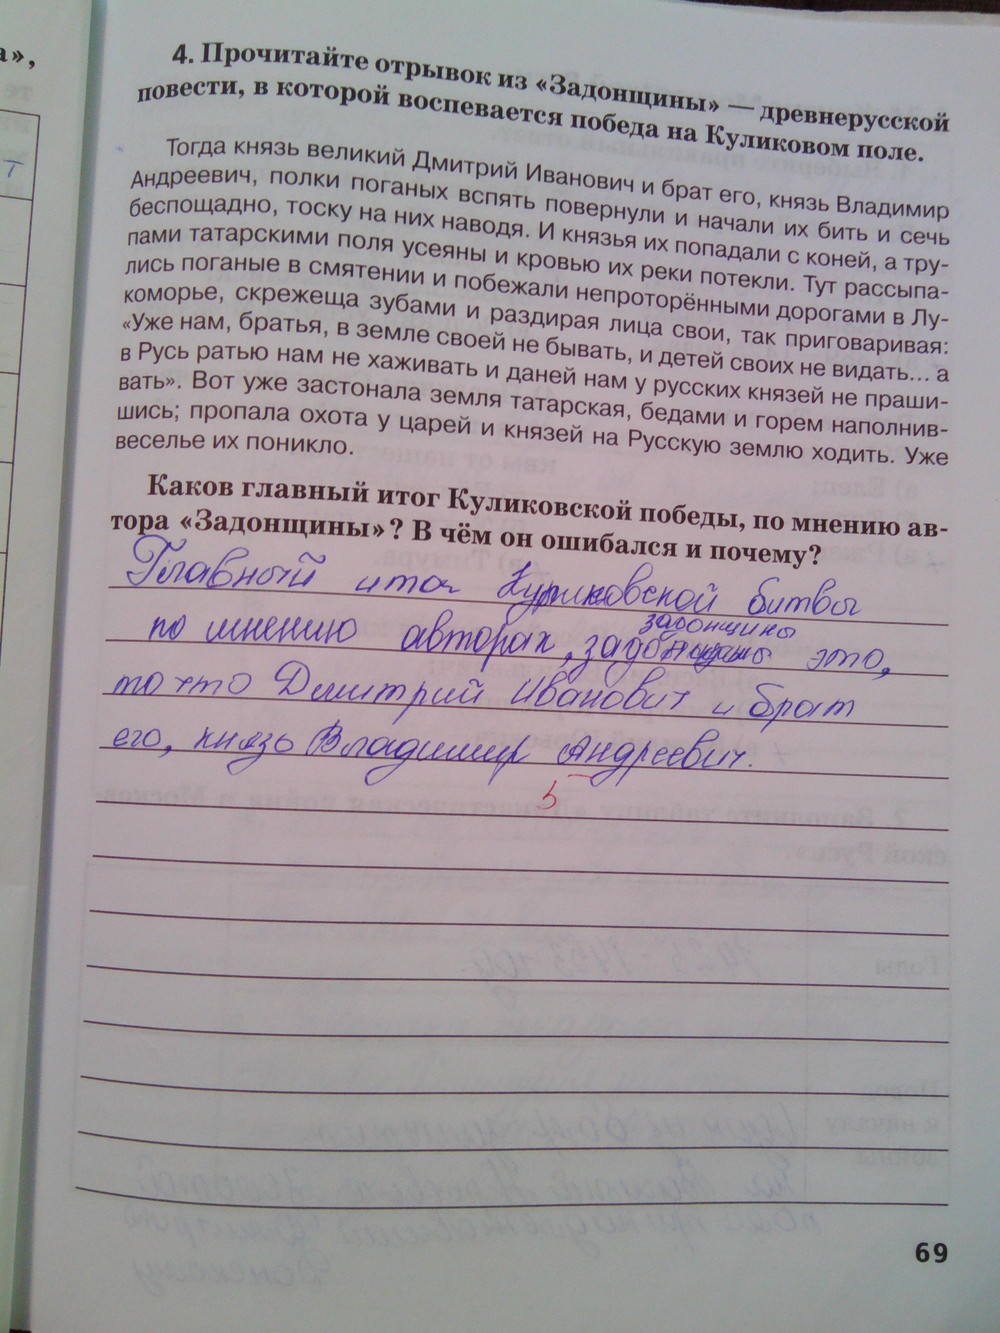 а»,
т
4. Прочитайте отрывок из «Задонщины» — древнерусской
повести, в которой воспевается победа на Куликовом поле.
Тогда князь великий Дмитрий Иванович и брат его, князь Владимир
Андреевич, полки поганых вспять повернули и начали их бить и сечь
беспощадно, тоску на них наводя. И князья их попадали с коней, а тру-
пами татарскими поля усеяны и кровью их реки потекли. Тут рассыпа-
лись поганые в смятении и побежали непроторёнными дорогами в Лу-
коморье, скрежеща зубами и раздирая лица свои, так приговаривая:
«Уже нам, братья, в земле своей не бывать, и детей своих не видать... а
в Русь ратью нам не хаживать и даней нам у русских князей не праши-
вать». Вот уже застонала земля татарская, бедами и горем наполнив-
шись; пропала охота у царей и князей на Русскую землю ходить. Уже
веселье их поникло.
Каков главный итог Куликовской победы, по мнению ав-
тора «Задонщины»? В чём он ошибался и почему?
Главный итог Куликовской битвы
задонщины
по мнению автора, это,
то что Дмитрий Иванович и брат
его, князь Владимир Андреевич.
5
69